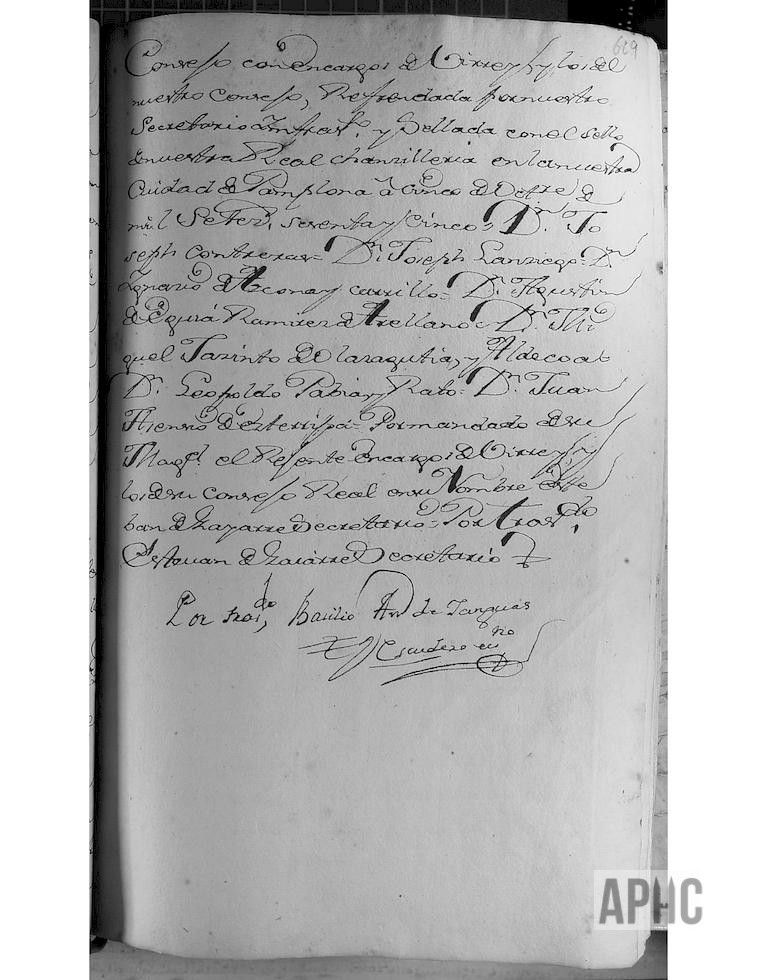 629
Consejo con encargos de Virrey, y los del
nuestro consejo, Refrendada por nuestro
Secretario Infrast.º y Sellada con el sello
de nuestra Real chanzilleria en la nuestra
Ciudad de Pamplona à cinco de Octre de
mil Setez.s sesenta y Cinco = D.n Jo
seph Contreras = D.n Joseph Lanziego = D.n
Ignacio de Azcona y carrillo = D.n Agustin
de Eguiá Ramirez de Arellano = D.n Mi
guel Jazinto de Olazagutia, y Aldecoa =
D.n Leopoldo Pabia y Rato = D.n Juan
Asensio de Ezterripa = Por mandado de su
Mag.d el Rejente en cargos de Virrey, y
los de su consejo Real en su Nombre Este
ban de Zayarre Secretario = Por tras.do
Estevan de Zaiarre Secretario
Por tras.do Basilio An. de Tanguas
Escudero es.no
APHC